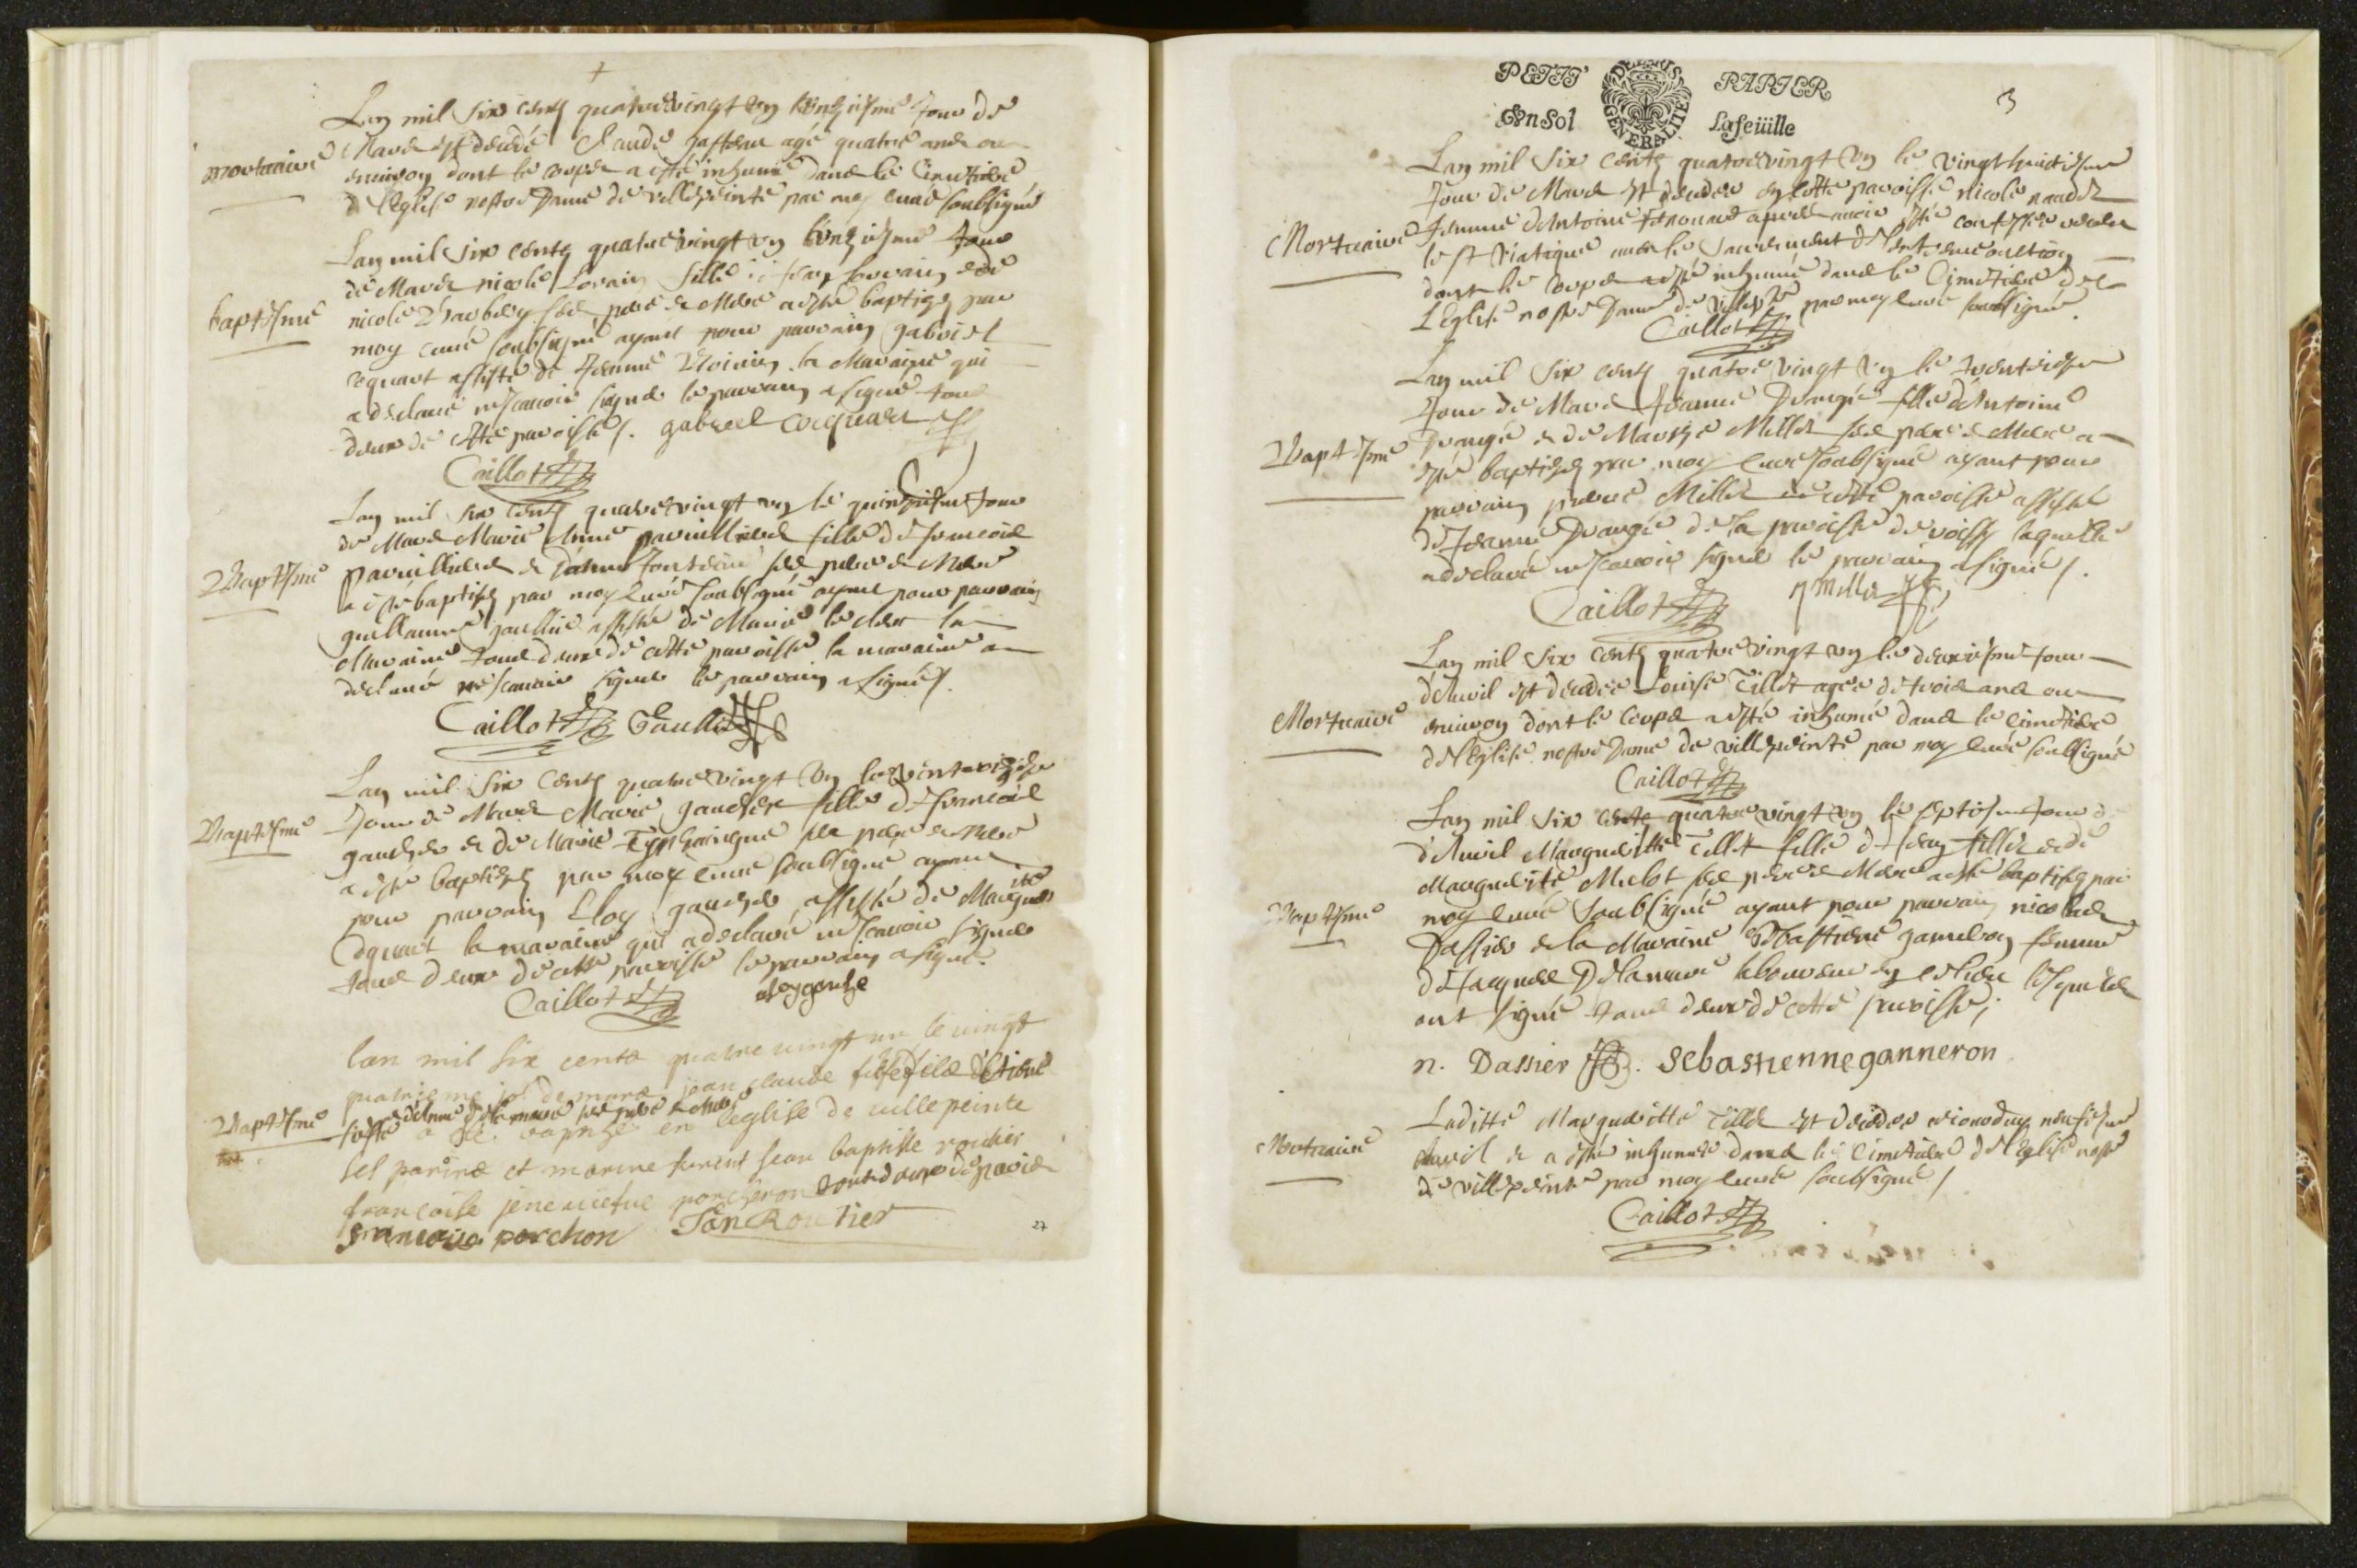 Lan mil six cents quatrevingt un unziesme Jour de
mortuaire
Mars est decedé Claude gasteau agé quatre ans ou
environ dont le corps a esté inhumé dans le Cimetiere
de l'Eglise nostre Dame de villepeinte par moy curé soubsigné
Lan mil six cents quatrevingt un unziesme Jour
de Mars nicole Lorain fille de Jean lorrain et de
baptesme
nicole ses pere et Mere a esté baptizée par
moy curé soubsigné ayant pour parrain gabriel
coquart assisté de Jeanne la Maraine qui
a declaré ne scavoir signer le parrain a signé tous
deux de cette paroisse /. gabriel cocquart
Caillot
Lan mil six cents quatrevingt un le quinziesme Jour
de Mars Marie Anne pavilliers fille de francois
Baptesme
pavilliers et ses pere et Mere
a esté baptizée par moy Curé soubsigné ayant pour parrain
guillaume gaullié assisté de Marie le clerc la
Maraine tous deux de cette paroisse la maraine a
declaré ne scavoir signer le parrain a signé /.
Caillot Gaullié
Lan mil six cents quatrevingt un le
Baptesme
Jour de Mars Marie gaucher fille de francois
gaucher et de Marie ses pere et Mere
a esté baptizée par moy curé soubsigné ayant
pour parrain Eloy gaucher assisté de Marguerite
Coquart la maraine qui a declaré ne scavoir signer
tous deux de cette paroisse le parrain a signé.
Caillot
lan mil six cents quatre vingt un le vingt
quatrieme jor de mars jean claude fils d'Etiene
Baptesme
ses pere et mere
a été baptizé en leglise de villepeinte
ses parins et marine furent jean baptiste routier
francoise jeneviefue porcheron tous deux de paris
francoise porchon Jan Routier
27
PETIT PAPIER
Un Sol Lafeüille
GENERALITE DE PARIS
3
Lan mil six cents quatrevingt un le vingt huictiesme
Jour de Mars est decedée en cette paroisse nicole naudet
Mortuaire
femme d'Antoine apres avoir esté confessée receu
le st viatique avec le sacrement de l'extreme onction
dont le corps a esté inhumé dans le Cimetiere de
L'Eglise nostre Dame de villepte par moy curé soubsigné.
Caillot
Lan mil six cents quatrevingt un le trentiesme
Jour de Mars Jeanne Drangé fille d'Antoine
Baptesme
Drangé et de Millet ses pere et Mere a
esté baptizée par moy Curé soubsigné ayant pour
parrain pierre Millet de cette paroisse assisté
de Jeanne Drangé de la paroisse de roissy laquelle
a declaré ne scavoir signer le parrain a signé /.
Caillot P Millet
Lan mil six cents quatrevingt un le deuxiesme Jour
d'Avril est decedée Louise Tillet agée de trois ans ou
Mortuaire
environ dont le Corps a esté inhumé dans le cimetiere
de l'Eglise nostre Dame de villepeinte par moy Curé soubsigné
Caillot
Lan mil six cents quatrevingt un le septiesme Jour
d'Avril Margueritte Tillet fille de Jean tillet et de
Marguerite Melot ses pere et Mere a esté baptizée par
Baptesme
moy Curé soubsigné ayant pour parrain nicolas
Dassier et la Maraine Sebastiene ganneron femme
de Jacques Delamare laboureur lesquels
ont signé tous deux de cette paroisse;
n. Dassier . sebastienne ganneron
Laditte Margueritte Tillet est decedée
Mortuaire
Avril et a esté inhumée dans le Cimetiere de l'Eglise nostre
de villepeinte par moy Curé soubsigné /
Caillot